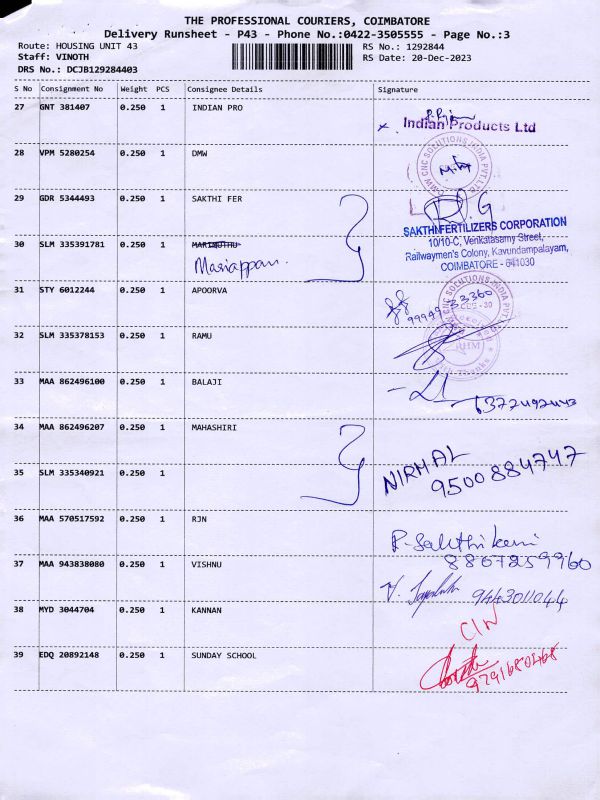 THE PROFESSIONAL COURIERS, COIMBATORE
Delivery Runsheet - P43 - Phone No.:0422-3505555 - Page No.:3
Route: HOUSING UNIT 43
RS No.: 1292844
Staff: VINOTH
RS Date: 20-Dec-2023
DRS No.: DCJB129284403
S No Consignment No Weight PCS Consignee Details Signature
27 GNT 381407 0.250 1 INDIAN PRO
Indian Products Ltd
28 VPM 5280254 0.250 1 DMW
29 GDR 5344493 0.250 1 SAKTHI FER
SAKTHI FERTILIZERS CORPORATION
10/10-C, Venkatasamy Street,
Railwaymen's Colony, Kavundampalayam,
COIMBATORE - 641030
30 SLM 335391781 0.250 1 MARIMUTHU
Mariappan
31 STY 6012244 0.250 1 APOORVA
32 SLM 335378153 0.250 1 RAMU
33 MAA 862496100 0.250 1 BALAJI
34 MAA 862496207 0.250 1 MAHASHIRI
NIRMAL
9500884747
35 SLM 335340921 0.250 1
36 MAA 570517592 0.250 1 RJN
37 MAA 943838080 0.250 1 VISHNU
38 MYD 3044704 0.250 1 KANNAN
39 EDQ 20892148 0.250 1 SUNDAY SCHOOL